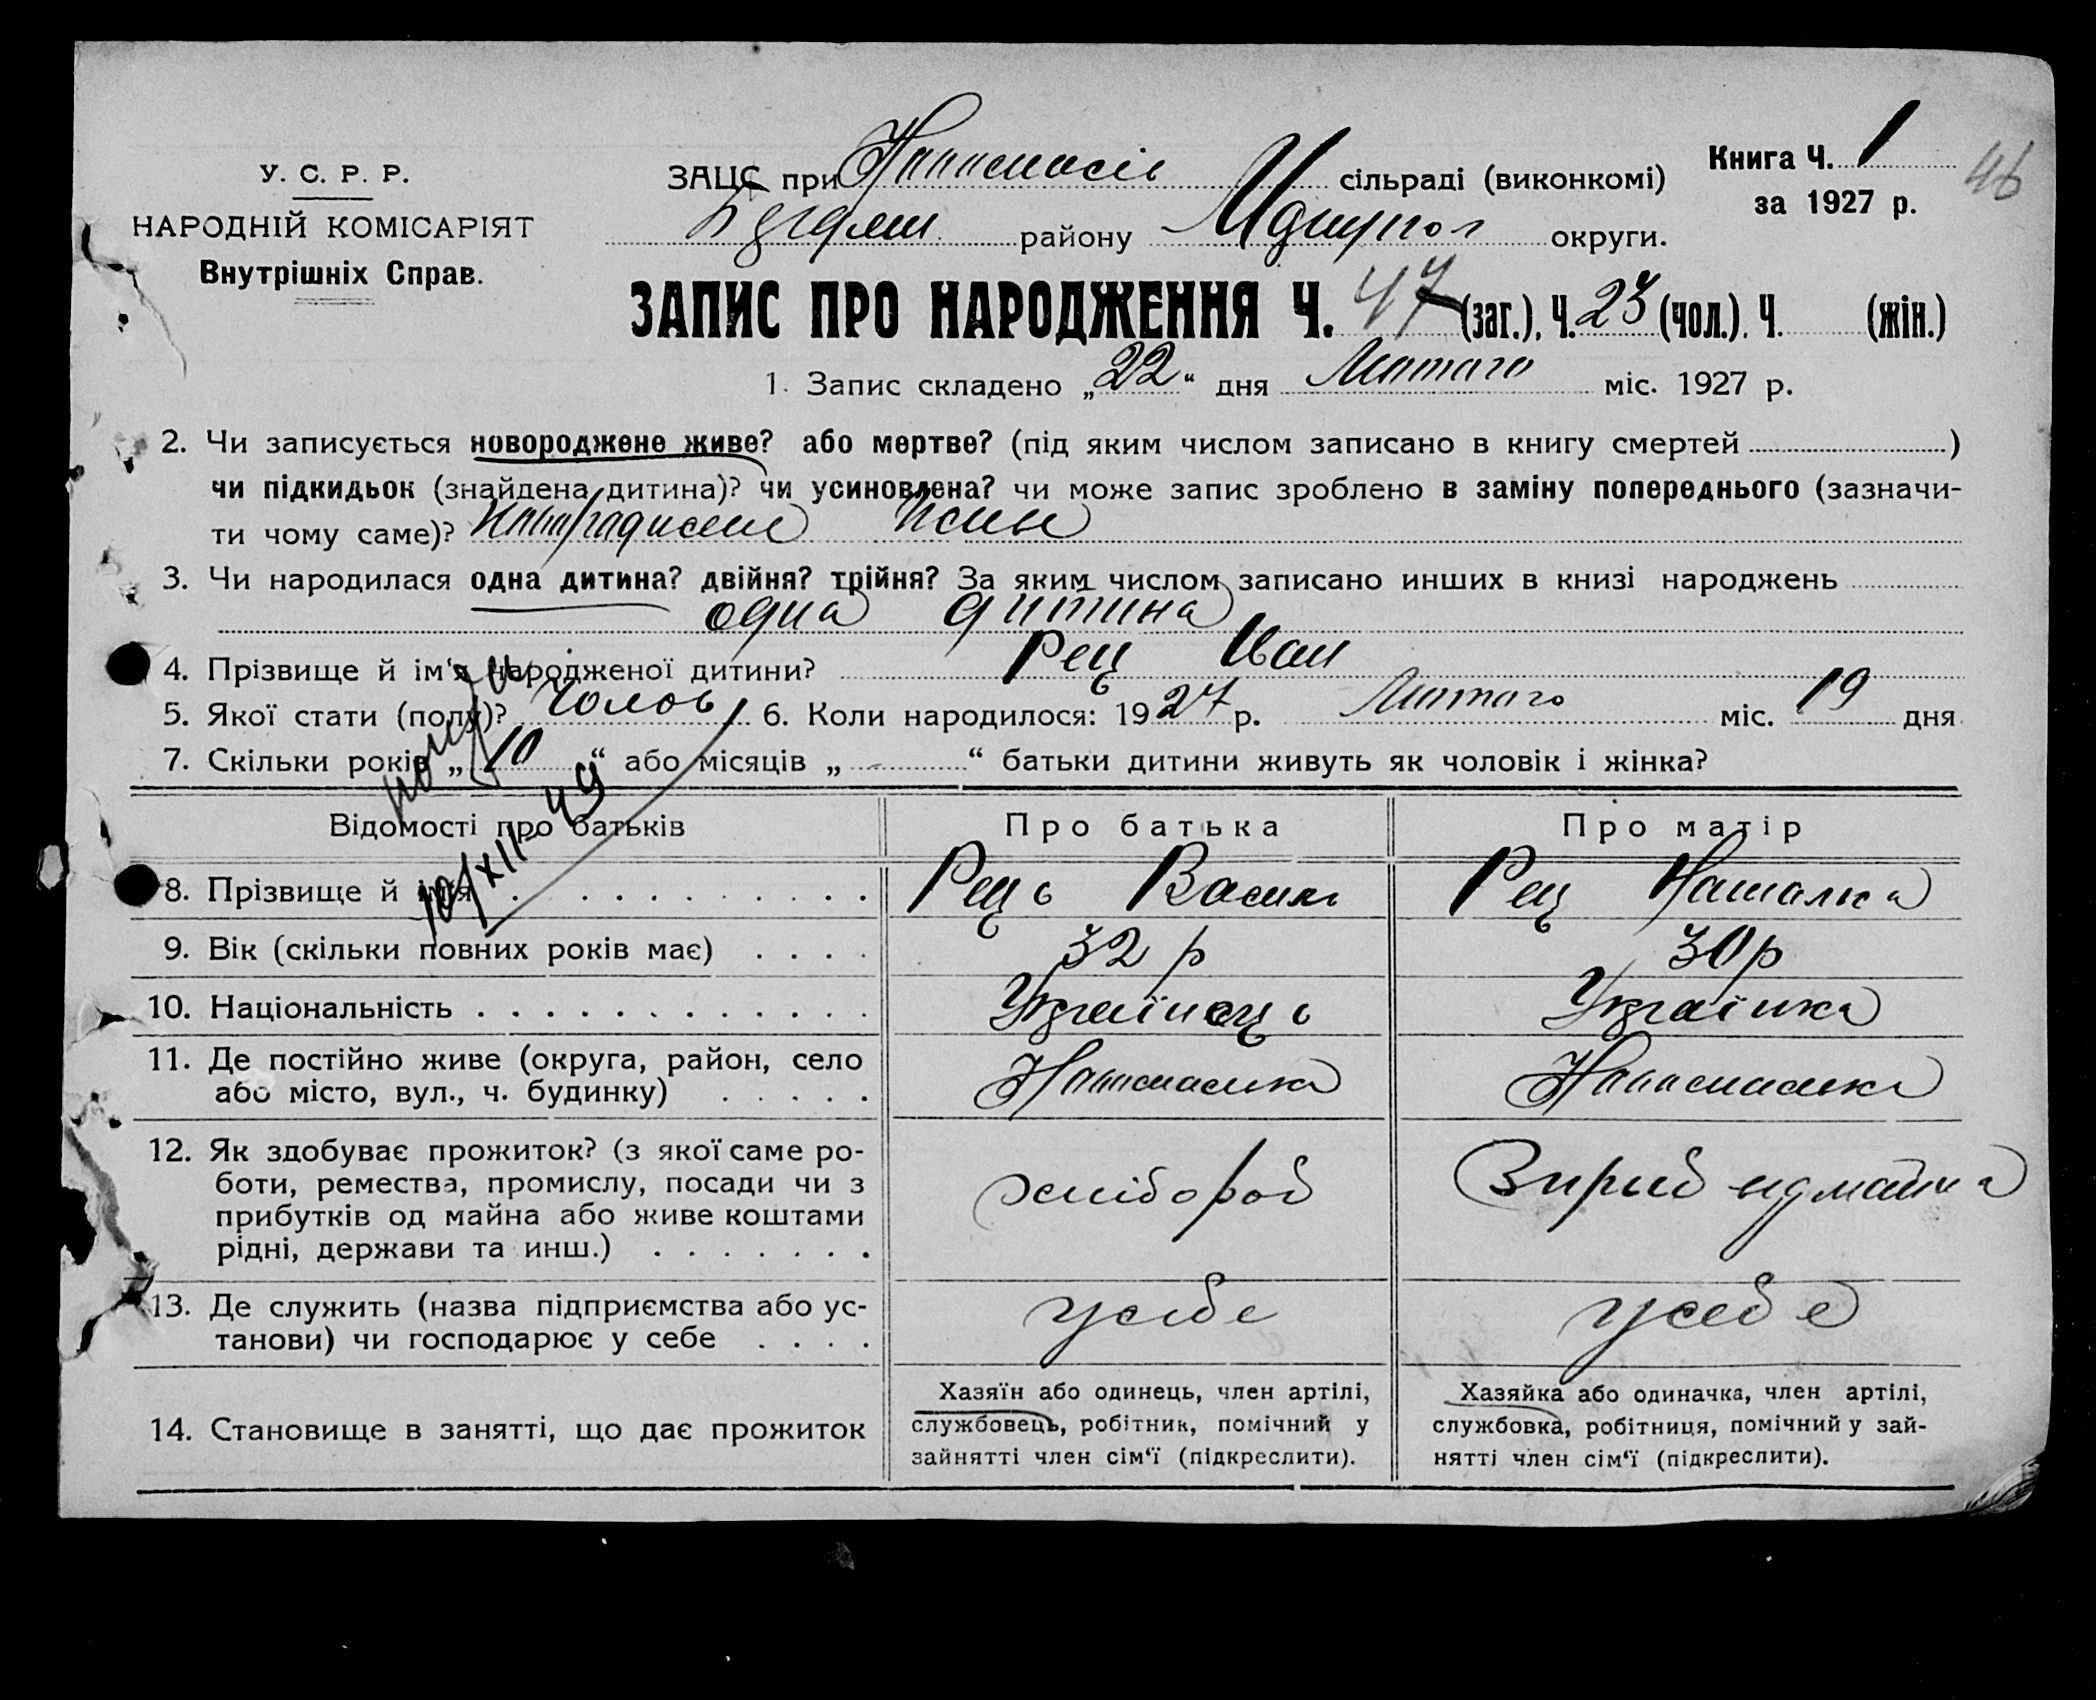 У. С. Р. Р.
НАРОДНІЙ КОМІСАРІЯТ
Внутрішніх Справ.
ЗАЦС при сільраді (виконкомі)
району округи.
Книга Ч. 1
за 1927 р.
46
ЗАПИС ПРО НАРОДЖЕННЯ Ч. 47 (заг.), Ч. 23 (чол.). Ч. (жін.)
1. Запис складено „22“ дня Лютаго міс. 1927 р.
2. Чи записується новороджене живе? або мертве? (під яким числом записано в книгу смертей )
чи підкидьок (знайдена дитина)? чи усиновлена? чи може запис зроблено в заміну попереднього (зазначи-
ти чому саме)?
3. Чи народилася одна дитина? двійня? трійня? За яким числом записано инших в книзі народжень
одна дитина
4. Прізвище й ім‘я народженої дитини? Рец Иван
5. Якої стати (полу)? Чолов 6. Коли народилося: 1927 р. Лютаго міс. 19 дня
7. Скільки років „10“ або місяців „-“ батьки дитини живуть як чоловік і жінка?
10/XII-49
Відомості про батьків Про батька Про матір
8. Прізвище й ім‘я Рець Василь Рец Наталка
9. Вік (скільки повних років має) 32 р 30 р
10. Національність Українець Українка
11. Де постійно живе (округа, район, село
або місто, вул., ч. будинку)
12. Як здобуває прожиток? (з якої саме ро-
боти, ремества, промислу, посади чи з
прибутків од майна або живе коштами
рідні, держави та инш.)
хлібороб
13. Де служить (назва підприємства або ус-
танови) чи господарює у себе
усебе усебе
14. Становище в занятті, що дає прожиток
Хазяїн або одинець, член артілі,
службовець, робітник, помічний у
зайнятті член сім‘ї (підкреслити).
Хазяйка або одиначка, член артілі,
службовка, робітниця, помічний у зай-
нятті член сім‘ї (підкреслити).